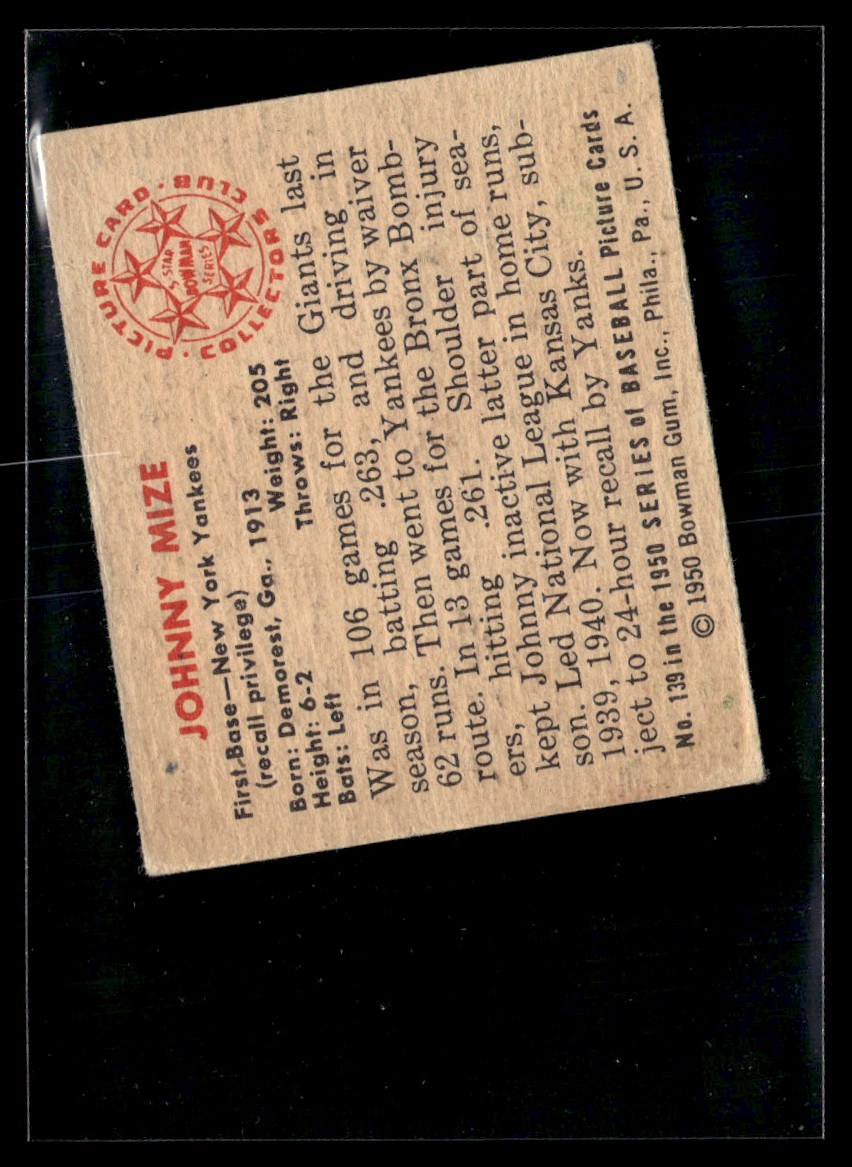 JOHNNY MIZE
First-Base—New York Yankees
(recall privilege)
Born: Demorest, Ga., 1913
Height: 6-2 Weight: 205
Bats: Left Throws: Right
PICTURE CARD · COLLECTORS CLUB ·
5 STAR
BOWMAN
SERIES
Was in 106 games for the Giants last
season, batting .263, and driving in
62 runs. Then went to Yankees by waiver
route. In 13 games for the Bronx Bomb-
ers, hitting .261. Shoulder injury
kept Johnny inactive latter part of sea-
son. Led National League in home runs,
1939, 1940. Now with Kansas City, sub-
ject to 24-hour recall by Yanks.
No. 139 in the 1950 SERIES of BASEBALL Picture Cards
© 1950 Bowman Gum, Inc., Phila., Pa., U. S. A.